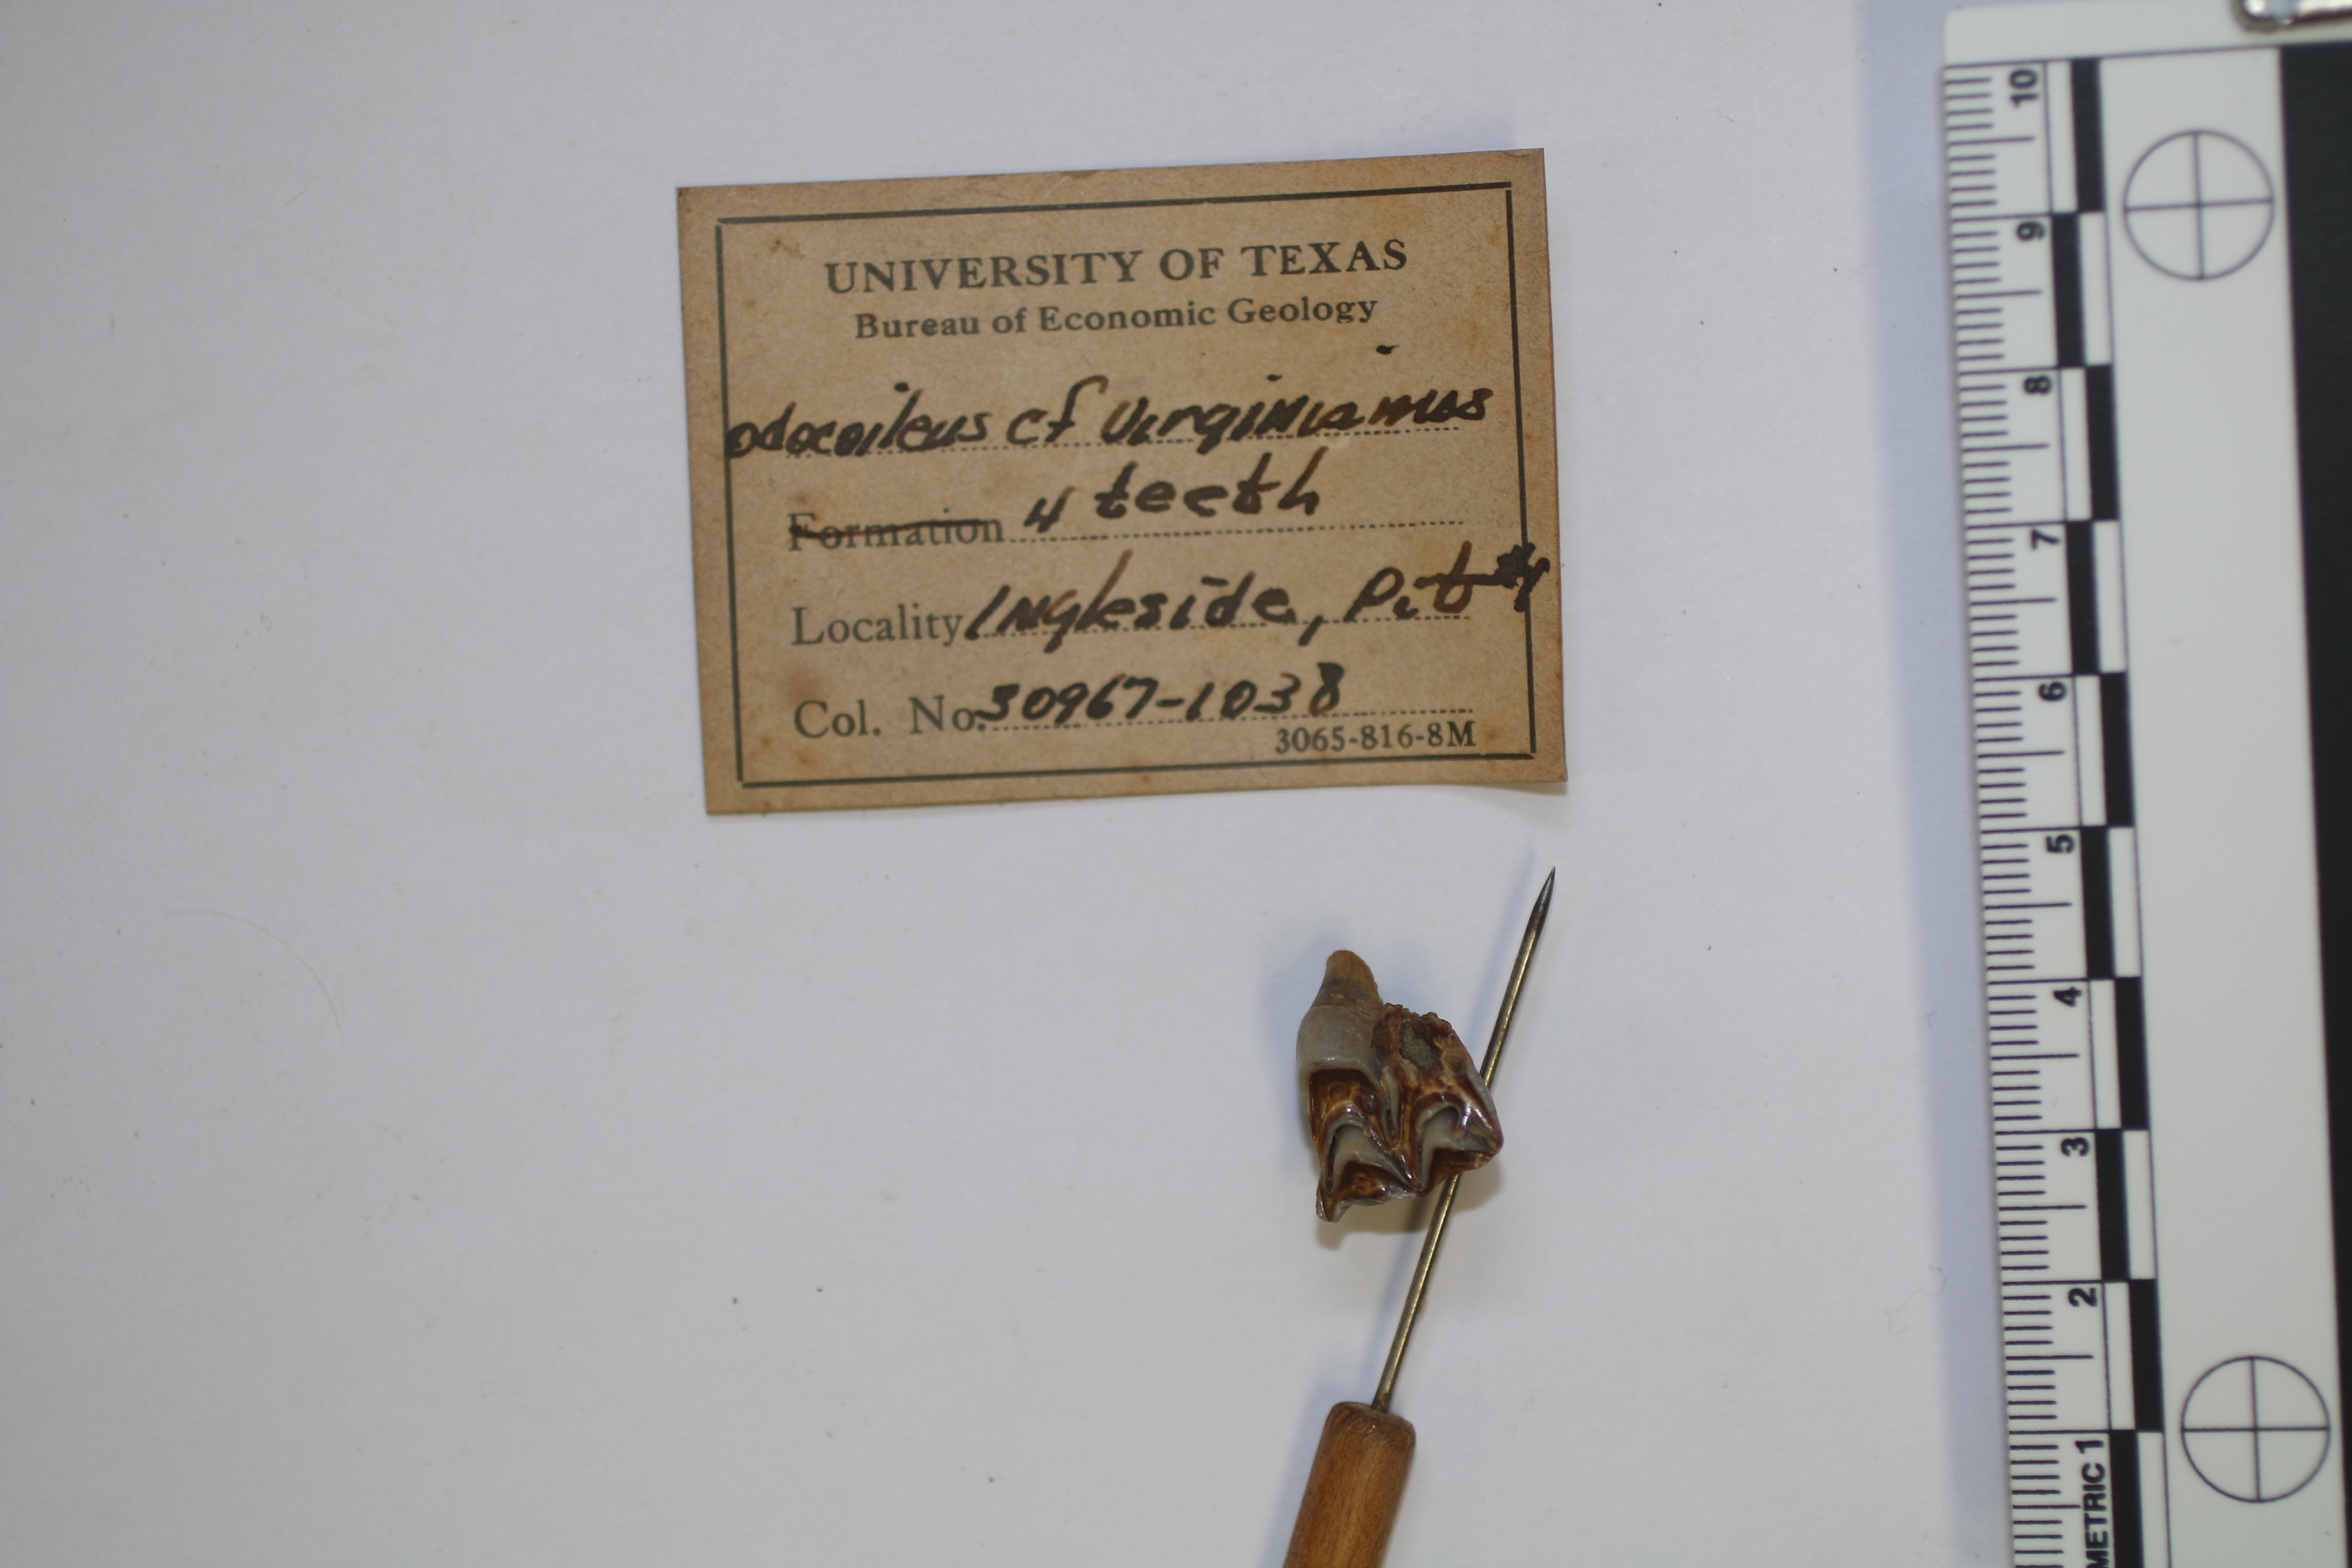 UNIVERSITY OF TEXAS
Bureau of Economic Geology
odocoileus cf virginianus
Formation 4 teeth
Locality Ingleside, Pit
Col. No. 30967-1038
3065-816-8M
10
9
8
7
6
5
4
3
2
METRIC 1